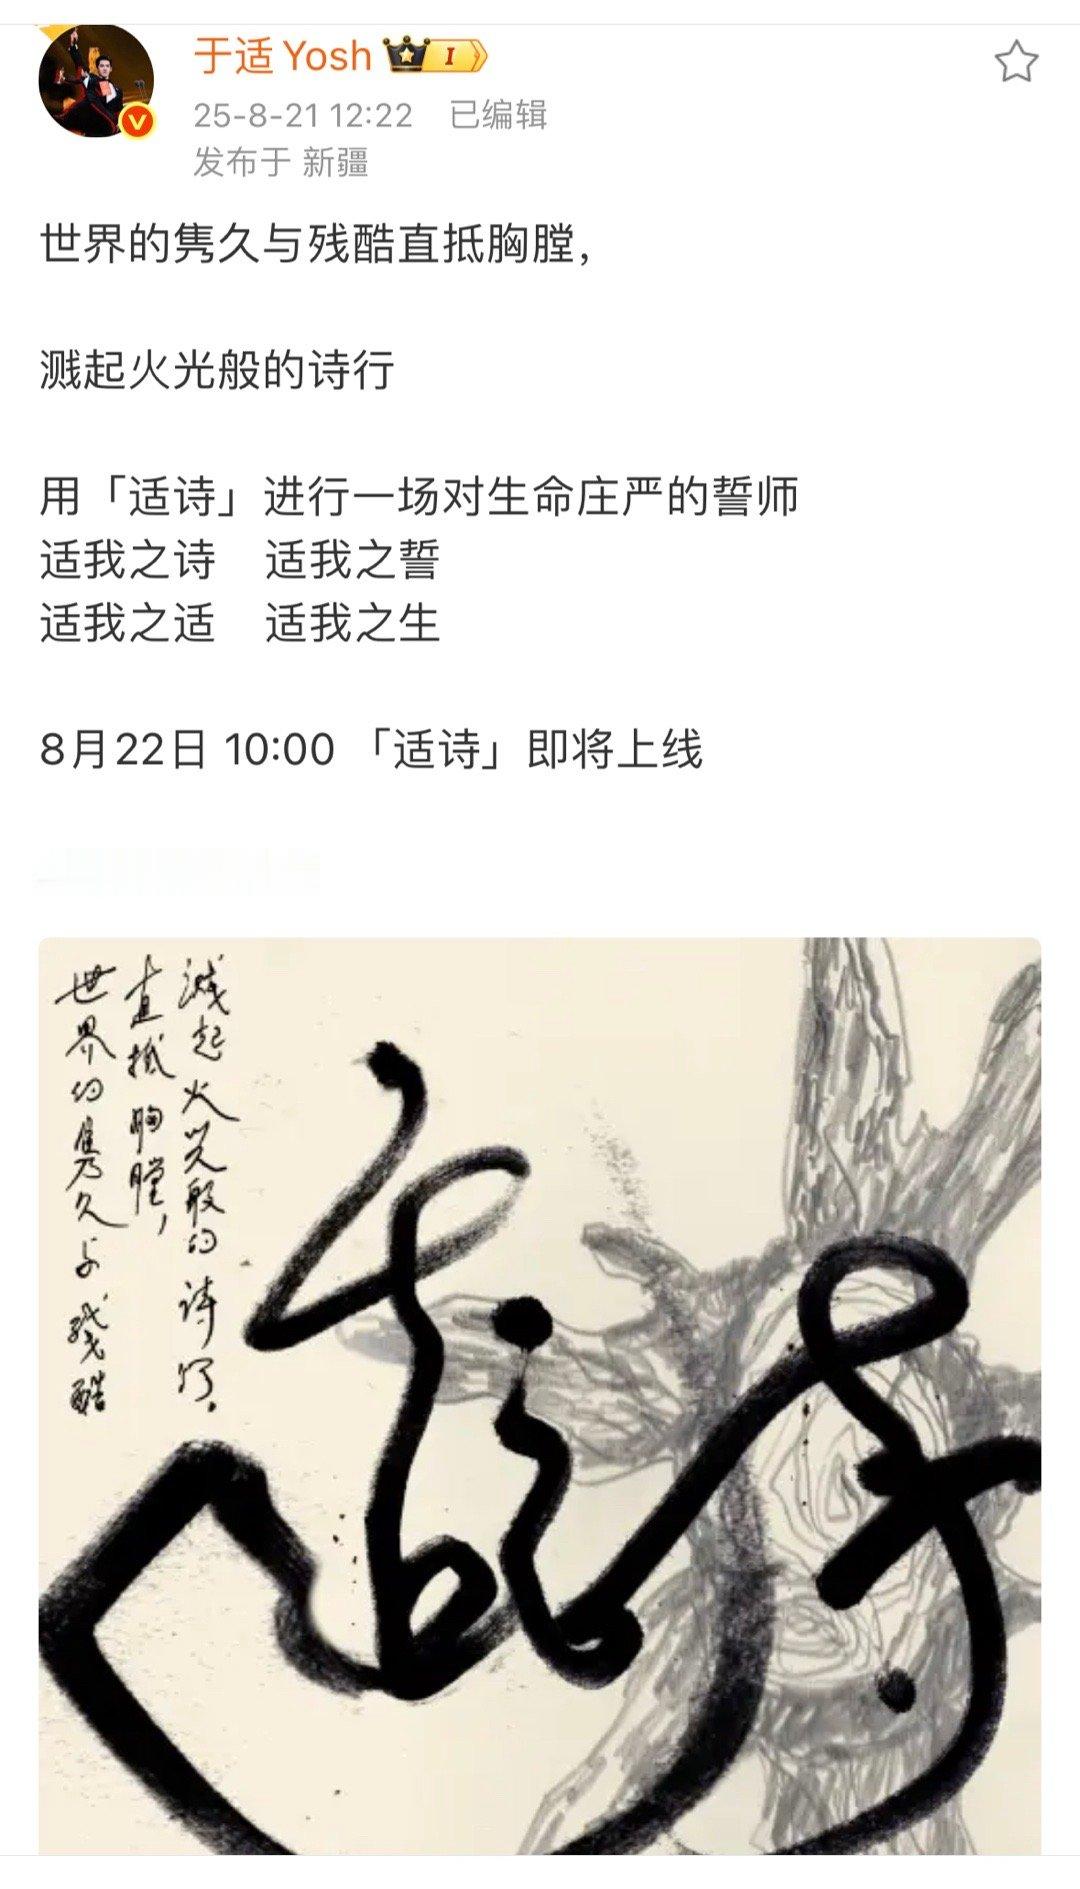 于适Yosh I
25-8-21 12:22 已编辑
发布于 新疆
世界的隽久与残酷直抵胸膛，
溅起火光般的诗行
用「适诗」进行一场对生命庄严的誓师
适我之诗 适我之誓
适我之适 适我之生
8月22日 10:00 「适诗」即将上线
世界的隽久与残酷
直抵胸膛，
溅起火光般的诗行.
适诗